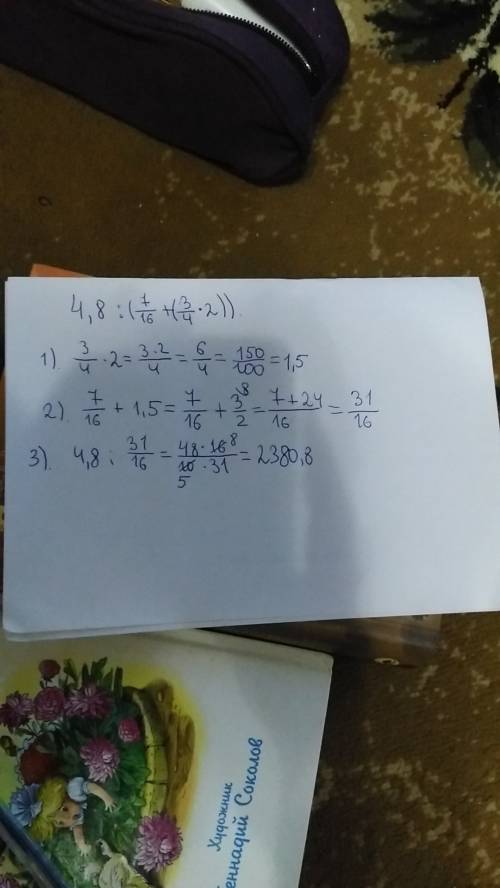 4,8 : (7/16 + (3/4 · 2)).
1). 3/4 · 2 = 3·2/4 = 6/4 = 150/100 = 1,5
2). 7/16 + 1,5 = 7/16 + 3\8/2 = 7+24/16 = 31/16
3). 4,8 : 31/16 = 48·16 8/10·31 5 = 2380,8
Художник
Геннадий Соколов